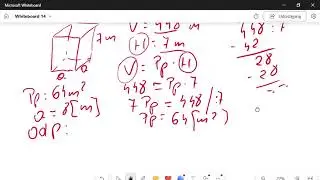 Microsoft Whiteboard
Whiteboard 14
Udostępnij
7m
a
a
Pp: 64m²
a = 8[m]
Odp:
V = 448
H: 7m
V = Pp · H
448 = Pp · 7
7Pp = 448 /:7
Pp = 64[m²]
448 : 7
- 42
28
- 28